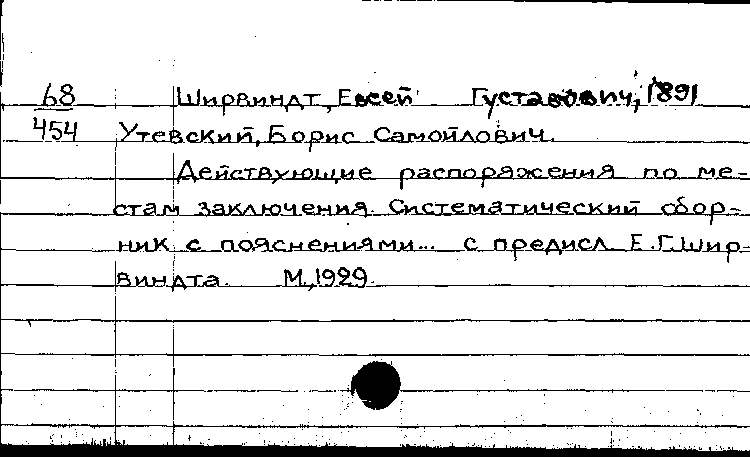 68 Ширвиндт, Евсей Густавович, 1891
454 Утевский, Борис Самойлович.
Действующие распоряжения по ме-
стам заключения. Систематический сбор-
ник с пояснениями... с предисл. Е.Г.Шир-
виндта. М., 1929.